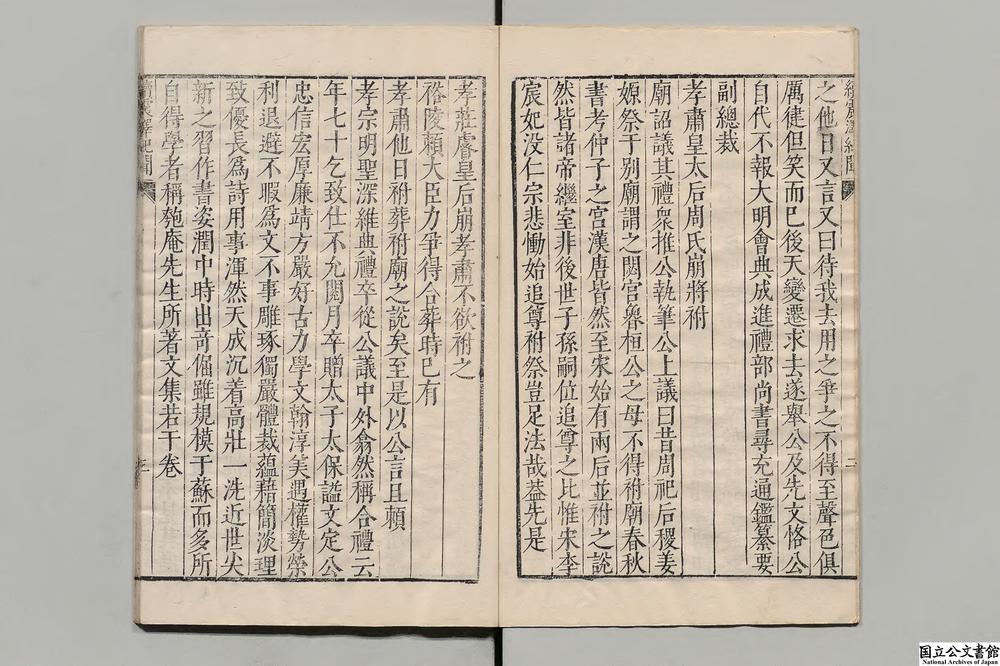 續震澤紀聞
之他日又言又曰待我去用之爭之不得至聲色俱
厲健但笑而已後天變遷求去遂舉公及先文恪公
自代不報大明會典成進禮部尚書尋充通鑑纂要
副總裁
孝肅皇太后周氏崩將祔
廟詔議其禮衆推公執筆公上議曰昔周祀后稷姜
嫄祭于别廟謂之閟宮魯桓公之母不得祔廟春秋
書考仲子之宮漢唐皆然至宋始有兩后並祔之說
然皆諸帝繼室非後世子孫嗣位追尊之比惟宋李
宸妃没仁宗悲慟始追尊祔祭豈足法哉葢先是
二
孝莊睿皇后崩孝肅不欲祔之
裕陵頼大臣力爭得合葬時巳有
孝肅他日祔葬祔廟之說矣至是以公言且頼
孝宗明聖深維典禮卒從公議中外翕然稱合禮云
年七十乞致仕不允閱月卒贈太子太保謚文定公
忠信宏厚廉靖方嚴好古力學文翰淳美遇權勢榮
利退避不暇爲文不事雕琢獨嚴體裁蘊藉簡淡理
致優長爲詩用事渾然天成沉着高壯一洗近世尖
新之習作書姿潤中時出竒倔雖規模于蘇而多所
自得學者稱匏庵先生所著文集若干卷
續震澤紀聞
三
国立公文書館
National Archives of Japan